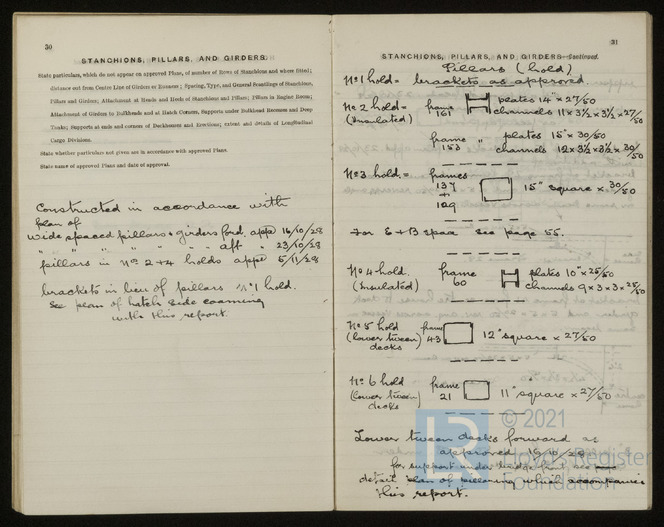 30
STANCHIONS, PILLARS, AND GIRDERS.
State particulars, which do not appear on approved Plans, of number of Rows of Stanchions and where fitted;
distance out from Centre Line of Girders or Runners; Spacing, Type, and General Scantlings of Stanchions,
Pillars and Girders; Attachment at Heads and Heels of Stanchions and Pillars; Pillars in Engine Room;
Attachment of Girders to Bulkheads and at Hatch Corners, Supports under Bulkhead Recesses and Deep
Tanks; Supports at ends and corners of Deckhouses and Erections; extent and details of Longitudinal
Cargo Divisions.
State whether particulars not given are in accordance with approved Plans.
State name of approved Plans and date of approval.
Constructed in accordance with
plan of
wide spaced pillars & girders ford. appd 16/10/28
" " " " " aft " 23/10/28
pillars in No 2 + 4 holds appd 5/11/28
brackets in lieu of pillars No 1 hold.
See plan of hatch side coaming
with this report.
31
STANCHIONS, PILLARS, AND GIRDERS—continued.
Pillars (hold)
No 1 hold = brackets as approved
No 2 hold = frame 161 plates 14" x 27/50
(Insulated) channels 11 x 3½ x 3½ x 27/50
frame 153 " plates 15" x 30/50
channels 12 x 3½ x 3½ x 30/50
No 3 hold = frames
137 + 129 15" square x 30/50
For E + B space see page 55.
No 4 hold. frame 60 plates 10" x 25/50
(Insulated) channels 9 x 3 x 3 x 25/50
No 5 hold frame 43 12" square x 27/50
(lower tween decks)
No 6 hold frame 21 11" square x 27/50
(lower tween decks)
Lower tween decks forward as
approved 16/10/28
for support under bridge front see
detail plan of pillaring which accompanies
this report.
LR
© 2021
Lloyd's Register
Foundation